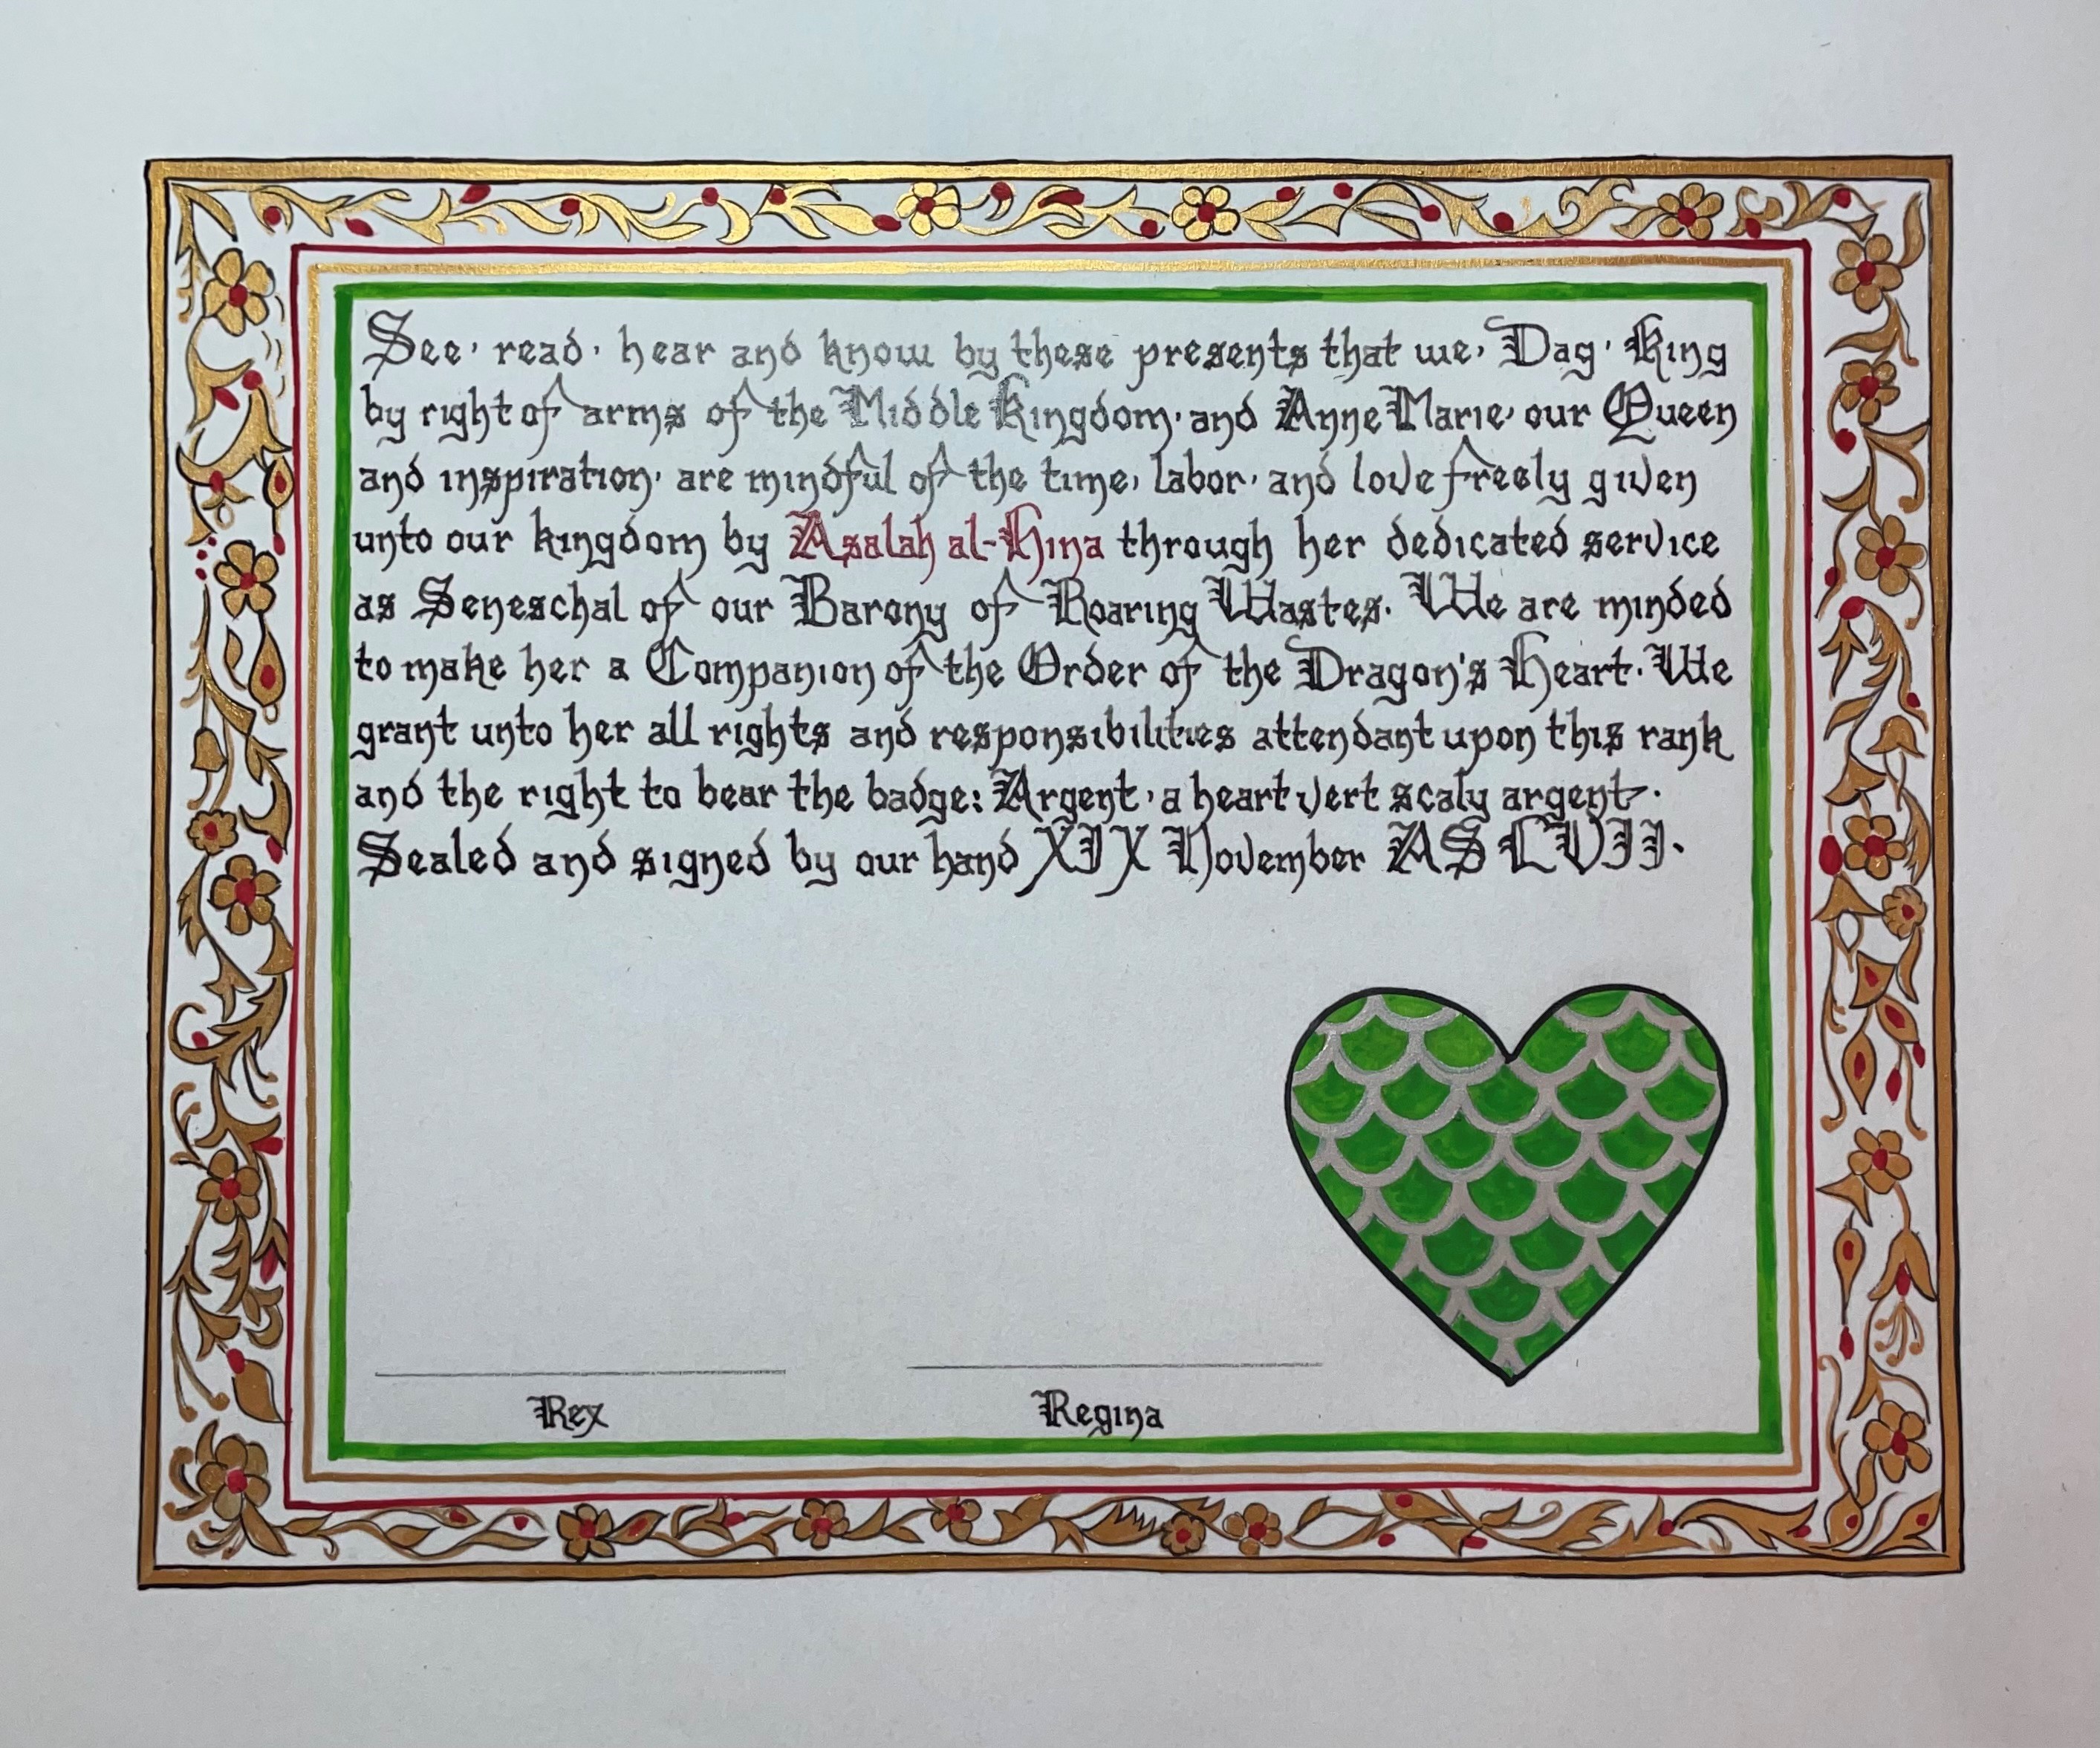 See, read, hear and know by these presents that we, Dag, King
by right of arms of the Middle Kingdom, and AnneMarie, our Queen
and inspiration, are mindful of the time, labor, and love freely given
unto our kingdom by Asalah al-Hina through her dedicated service
as Seneschal of our Barony of Roaring Wastes. We are minded
to make her a Companion of the Order of the Dragon's Heart. We
grant unto her all rights and responsibilities attendant upon this rank
and the right to bear the badge: Argent, a heart vert scaly argent.
Sealed and signed by our hand XIX November AS LVII.
Rex
Regina